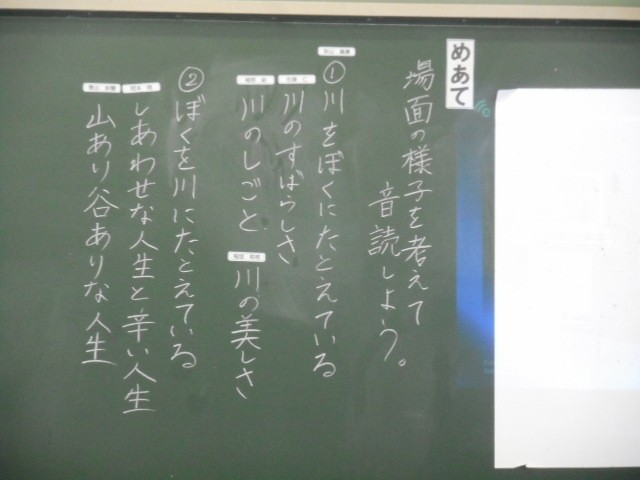 めあて
場面の様子を考えて
音読しよう。
①川をぼくにたとえている
川のすばらしさ
川のしごと
川の美しさ
②ぼくを川にたとえている
しあわせな人生と辛い人生
山あり谷ありな人生